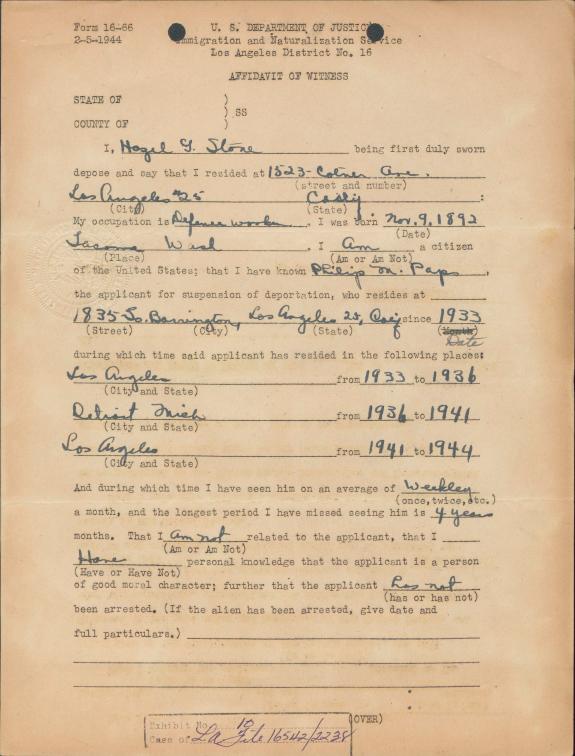 Form 16-66 U. S. DEPARTMENT OF JUSTICE
2-5-1944 Immigration and Naturalization Service
Los Angeles District No. 16
AFFIDAVIT OF WITNESS
STATE OF )
) SS
COUNTY OF )
I, Hazel G. Stone being first duly sworn
depose and say that I resided at 1523 Cotner Ave.
(street and number)
Los Angeles #25 Calif :
(City) (State)
My occupation is Defence worker . I was born Nov. 9, 1892
(Date)
Tacoma Wash . I Am a citizen
(Place) (Am or Am Not)
of the United States; that I have known Philip M. Paps ,
the applicant for suspension of deportation, who resides at
1835 So. Barrington, Los Angeles 25, Calif since 1933
(Street) (City) (State) (Month)
Date
during which time said applicant has resided in the following places:
Los Angeles from 1933 to 1936
(City and State)
Detroit Mich from 1936 to 1941
(City and State)
Los Angeles from 1941 to 1944
(City and State)
And during which time I have seen him on an average of Weekley
(once, twice, etc.)
a month, and the longest period I have missed seeing him is 4 years
months. That I am not related to the applicant, that I
(Am or Am Not)
Have personal knowledge that the applicant is a person
(Have or Have Not)
of good moral character; further that the applicant has not
(has or has not)
been arrested. (If the alien has been arrested, give date and
full particulars.)
(OVER)
Exhibit No. 10
Case of LA File 16542/2238